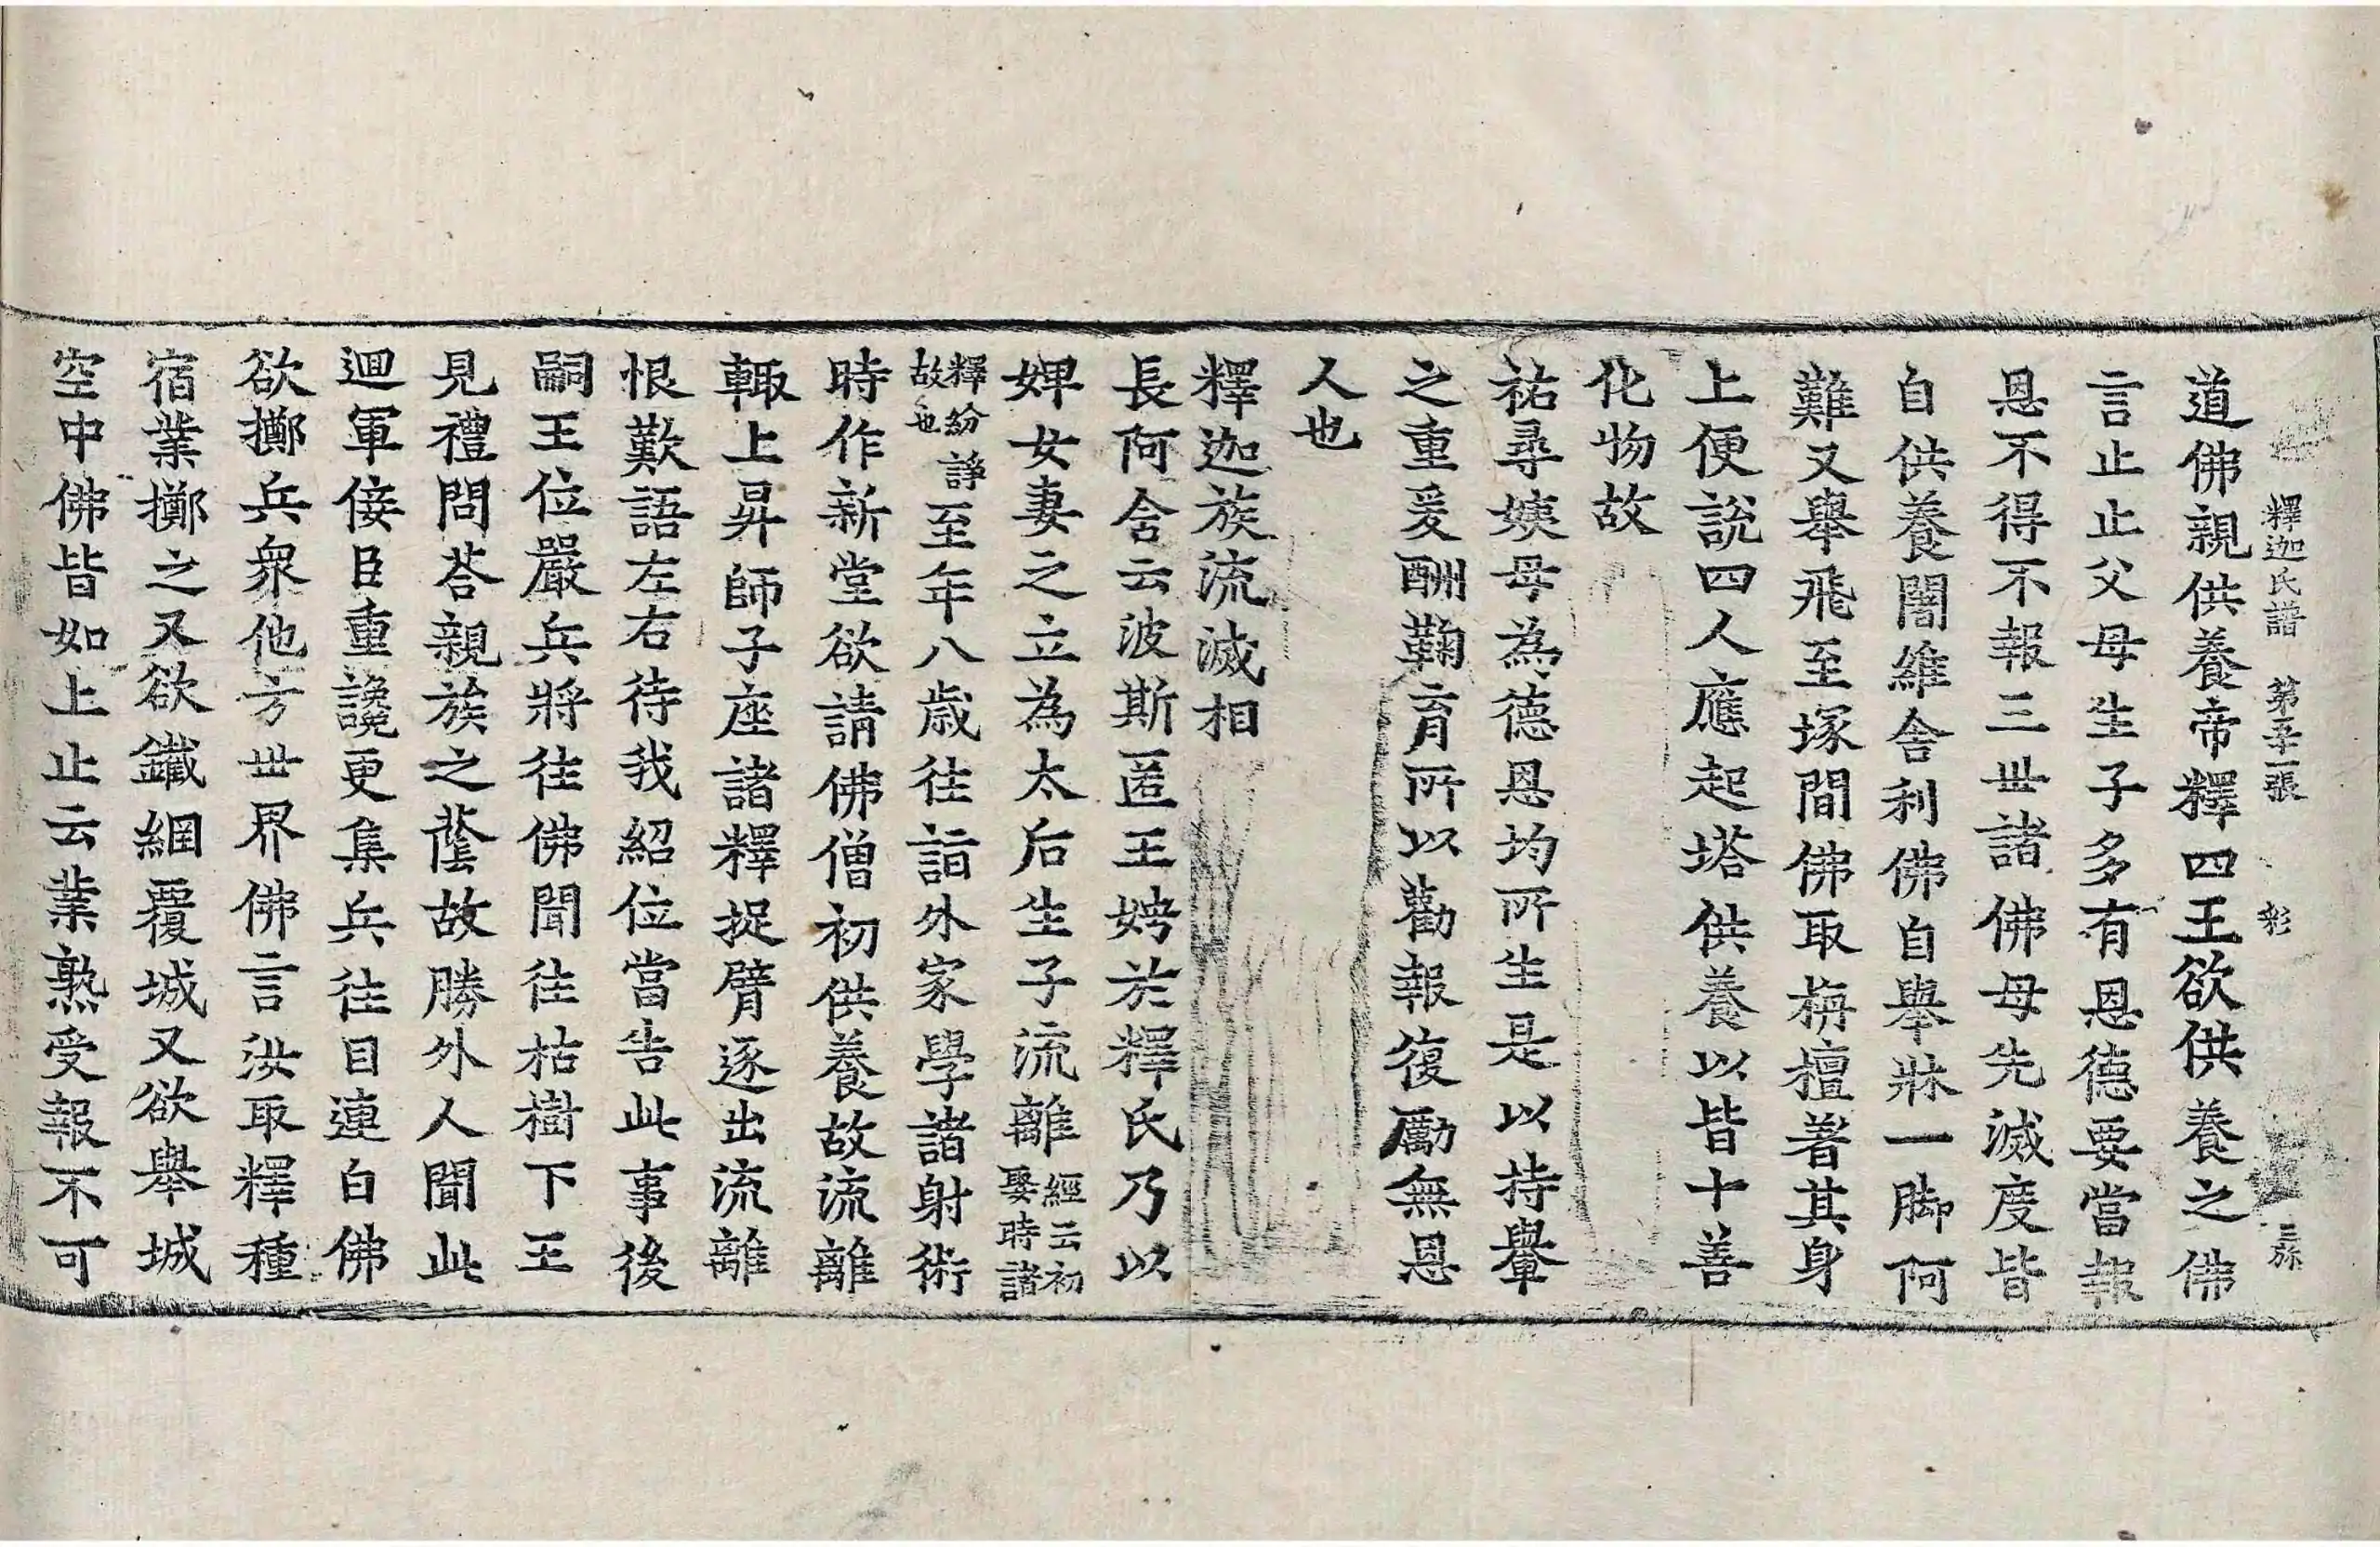 釋迦氏譜 第五十一張 彩
道佛親供養帝釋四王欲供養之佛
言止止父母生子多有恩德要當報
恩不得不報三世諸佛母先滅度皆
自供養闍維舍利佛自舉牀一脚阿
難又舉飛至塚間佛取栴檀著其身
上便說四人應起塔供養以皆十善
化物故
祐尋姨母為德恩均所生是以持轝
之重爰酬鞠育所以勸報復勵無恩
人也
釋迦族流滅相
長阿含云波斯匿王娉於釋氏乃以
婢女妻之立為太后生子流離經云初娶時諸
釋紛諍故也至年八歲往詣外家學諸射術
時作新堂欲請佛僧初供養故流離
輙上昇師子座諸釋捉臂逐出流離
恨歎語左右待我紹位當告此事後
嗣王位嚴兵將往佛聞往枯樹下王
見禮問荅親族之蔭故勝外人聞此
迴軍侫臣重讒更集兵往目連白佛
欲擲兵衆他方世界佛言汝取釋種
宿業擲之又欲鐵網覆城又欲舉城
空中佛皆如上止云業熟受報不可